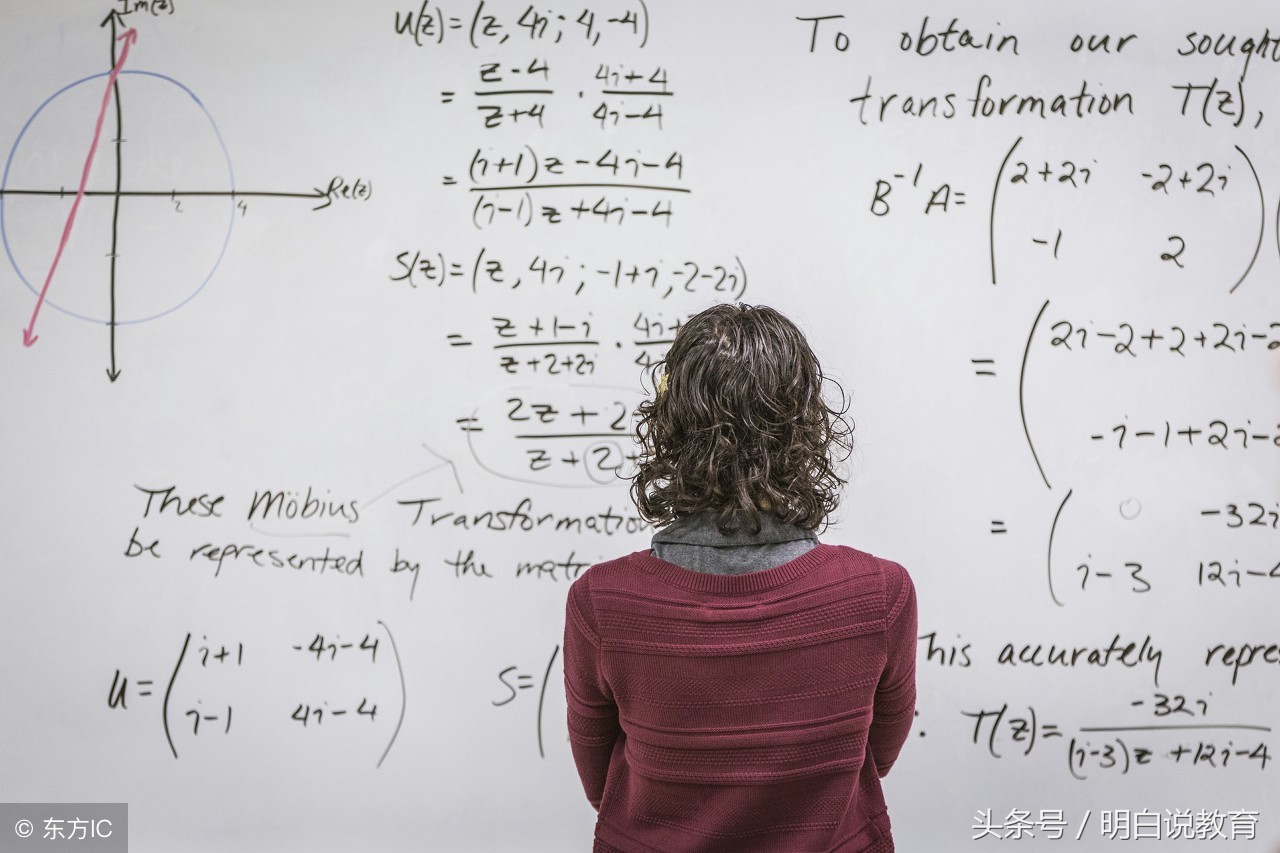 Im(z)
Re(z)
2
4
U(z)=(z, 4i; 4, -4)
= z-4 / z+4 · 4i+4 / 4i-4
= (i+1)z-4i-4 / (i-1)z+4i-4
S(z)=(z, 4i; -1+i, -2-2i)
= z+1-i / z+2+2i · 4i+ / 4i
= 2z+2 / z+2+
These Möbius Transformation
be represented by the matri
U= ( i+1 -4i-4
i-1 4i-4 )
S= (
To obtain our sought
transformation T(z),
B⁻¹A= ( 2+2i -2+2i
-1 2 )
= ( 2i-2+2+2i-2
-i-1+2i-2
= ( 0 -32i
i-3 12i-4
This accurately repre
∴ T(z)= -32i / (i-3)z+12i-4
© 东方IC
头条号 / 明白说教育